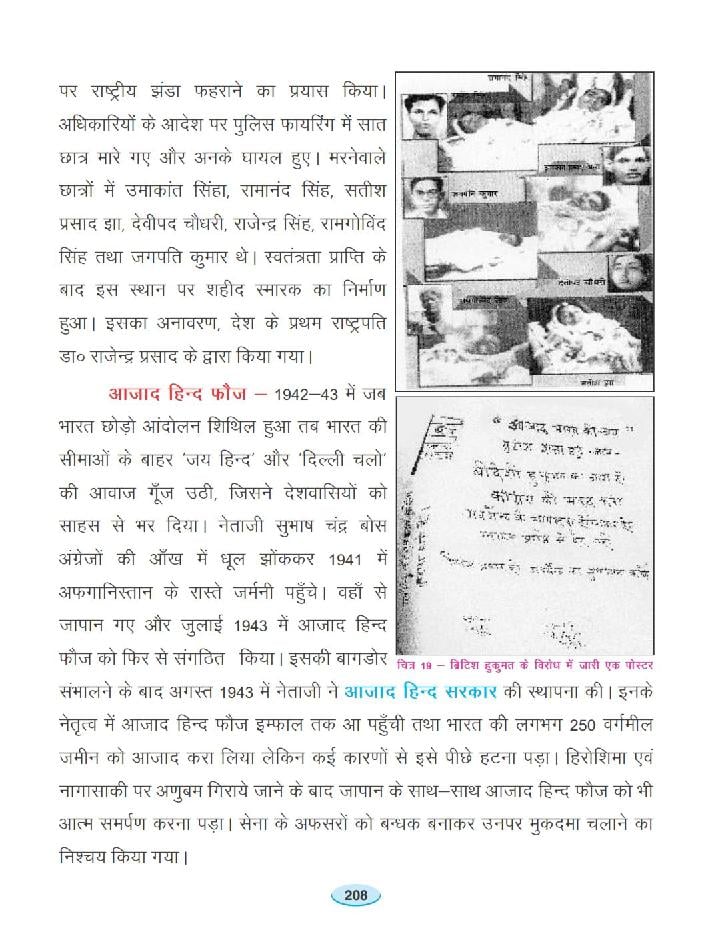 पर राष्ट्रीय झंडा फहराने का प्रयास किया।
अधिकारियों के आदेश पर पुलिस फायरिंग में सात
छात्र मारे गए और अनके घायल हुए। मरनेवाले
छात्रों में उमाकांत सिंहा, रामानंद सिंह, सतीश
प्रसाद झा, देवीपद चौधरी, राजेन्द्र सिंह, रामगोविंद
सिंह तथा जगपति कुमार थे। स्वतंत्रता प्राप्ति के
बाद इस स्थान पर शहीद स्मारक का निर्माण
हुआ। इसका अनावरण, देश के प्रथम राष्ट्रपति
डा० राजेन्द्र प्रसाद के द्वारा किया गया।
रामानंद सिंह
जगपति कुमार
देवीपद चौधरी
सतीश झा
आजाद हिन्द फौज – 1942–43 में जब
भारत छोड़ो आंदोलन शिथिल हुआ तब भारत की
सीमाओं के बाहर ‘जय हिन्द’ और ‘दिल्ली चलो’
की आवाज गूँज उठी, जिसने देशवासियों को
साहस से भर दिया। नेताजी सुभाष चंद्र बोस
अंग्रेजों की आँख में धूल झोंककर 1941 में
अफगानिस्तान के रास्ते जर्मनी पहुँचे। वहाँ से
जापान गए और जुलाई 1943 में आजाद हिन्द
फौज को फिर से संगठित किया। इसकी बागडोर
चित्र 19 – ब्रिटिश हुकुमत के विरोध में जारी एक पोस्टर
संभालने के बाद अगस्त 1943 में नेताजी ने आजाद हिन्द सरकार की स्थापना की। इनके
नेतृत्व में आजाद हिन्द फौज इम्फाल तक आ पहुँची तथा भारत की लगभग 250 वर्गमील
जमीन को आजाद करा लिया लेकिन कई कारणों से इसे पीछे हटना पड़ा। हिरोशिमा एवं
नागासाकी पर अणुबम गिराये जाने के बाद जापान के साथ–साथ आजाद हिन्द फौज को भी
आत्म समर्पण करना पड़ा। सेना के अफसरों को बन्धक बनाकर उनपर मुकदमा चलाने का
निश्चय किया गया।
208